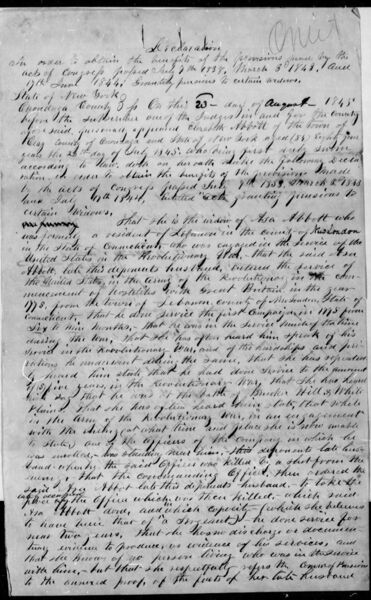 Declaration
In order to obtain the benefits of the provisions made by the
acts of Congress passed July 7th 1838, March 3d 1843, and
17th June 1844, Granting pensions to certain widows.
State of New York
Onondaga County SS On this 23 day of August 1845
before the subscriber one of the Judges in and for the County
aforesaid, personally appeared Abbott of the town of
County of Onondaga and State of New York aged
years the day of July 1845 who being first duly sworn
according to law, doth on her oath make the following Declar
ation in order to obtain the benefit of the provision made
by the acts of Congress passed July 7th 1838, March 3d 1843
and 17th 1844, granting pensions to
certain widows.
That she is the widow of Asa Abbott who
was a resident of Lebanon in the County of New London
in the State of Connecticut, who was engaged in the service of the
United States, in the Revolutionary War, that the said Asa
Abbott, late this deponents husband, entered the service of
the United States, in the Army of the Revolution, in the Com-
mencement of hostilities with Great Britain in the year
1775, from the town of Lebanon, County of New London, State of
Connecticut, that he done service the first campaign in 1775 from
Six to Nine months, that he was in the service
during the war, that she has often heard him speak of his
service in the Revolutionary War, and of the hardships and pri-
vations he endured the same, that she has repeated-
ly heard him state that he had done service to the amount
of five years, in the Revolutionary War, that she has heard
him say that he was at the battle of Bunker Hill & White
Plains, that she has often heard him state, that while
in the Army of the Revolutionary War, in an engagement
with the enemy, at what time and place she is now unable
to state, one of the Officers of the company in which he
was enrolled, was standing near him, this deponents late hus-
band, when the said Officer was killed by a shot from the
enemy, that the Commanding Officer then ordered the
said Asa Abbott, late this deponents husband, to take the
place of the Officer which was then killed, which said
Asa Abbott done, and which capacity (which she believes
to have been that of a Sergeant) he done service for
near two years, that she has no discharge or documen-
tary evidence to produce, as evidence of his services, and
that she knows of no person living who was in the service
with him, but that she respectfully refers the Commr of Pensions
to the annexed proof, of the facts of her late husband